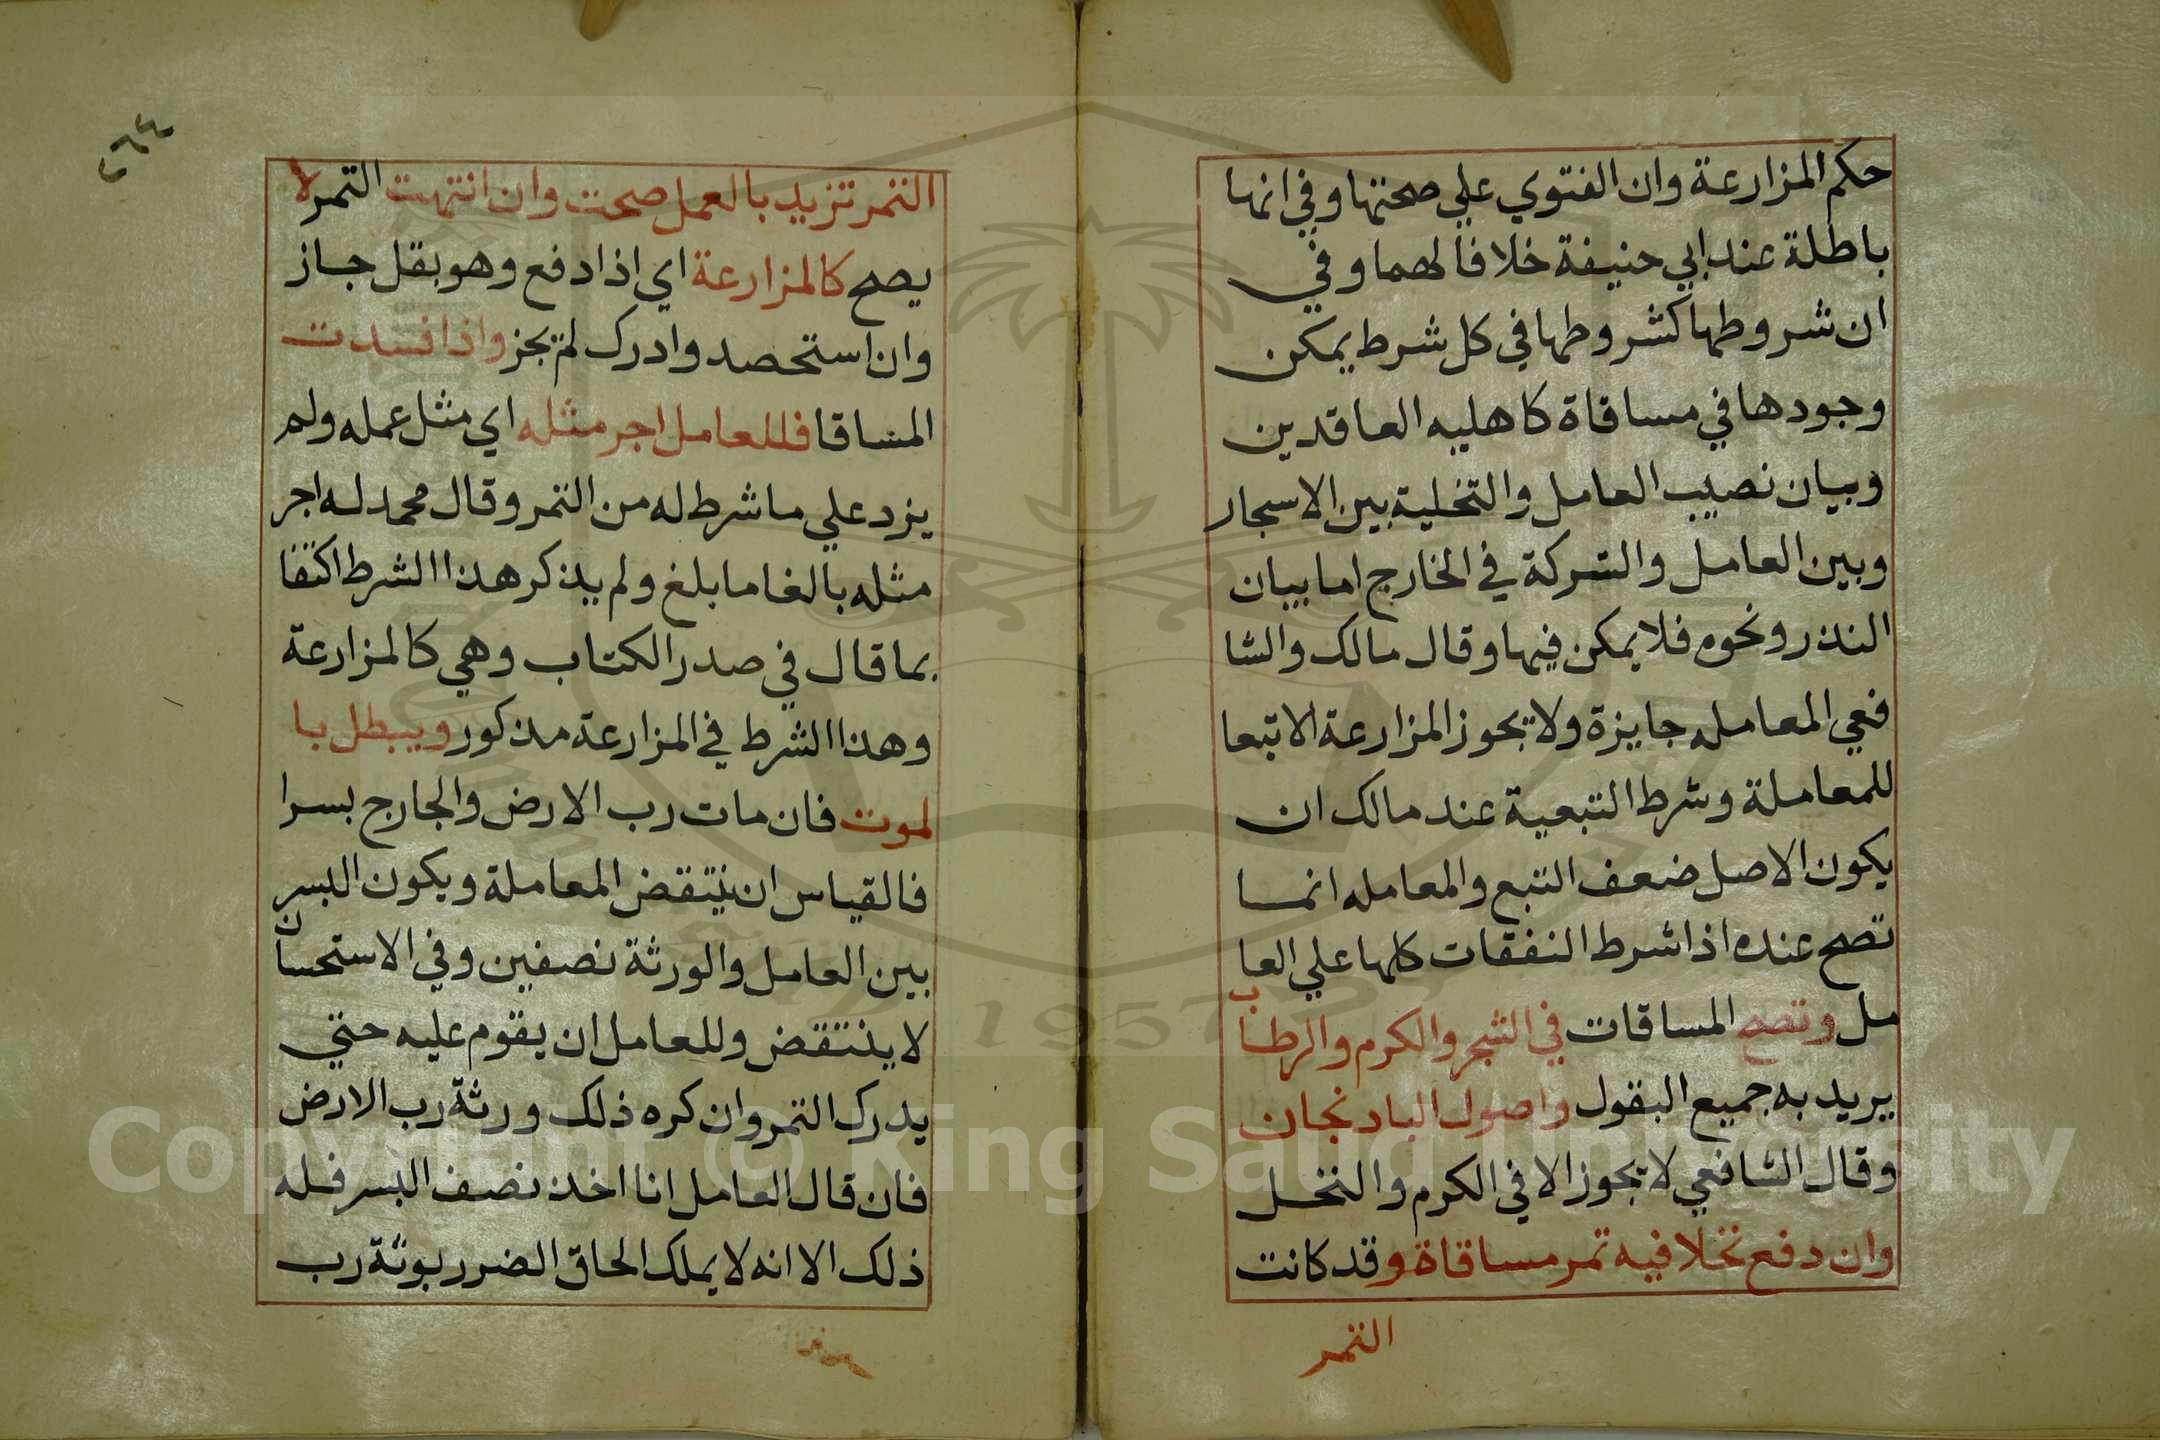 حكم المزارعة وان الفتوي علي صحتها وفي انها
باطلة عند ابي حنيفة خلافا لهما وفي
ان شروطها كشروطها في كل شرط يمكن
وجودها في مساقاة كاهليه العاقدين
وبيان نصيب العامل والتخلية بين الاسجار
وبين العامل والشركة في الخارج اما بيان
البذر ونحوه فلا يمكن فيها وقال مالك والشا
فعي المعامله جايزة ولا تجوز المزارعة الا تبعا
للمعاملة وشرط التبعية عند مالك ان
يكون الاصل ضعف التبع والمعامله انما
تصح عنده اذا شرط النفقات كلها علي العا
مل وتصح المساقات في الشجر والكرم والرطاب
يريد به جميع البقول واصول البادنجان
وقال الشافعي لا تجوز الا في الكرم والنخل
وان دفع نخلا فيه تمر مساقاة وقد كانت
التمر
٢٦٤
التمر تزيد بالعمل صحت وان انتهت التمر لا
يصح كالمزارعة اي اذا دفع وهو بقل جاز
وان استحصد وادرك لم تجز واذا فسدت
المساقا فللعامل اجر مثله اي مثل عمله ولم
يزد علي ما شرط له من التمر وقال محمد له اجر
مثله بالغا ما بلغ ولم يذكر هذا الشرط اكتفا
بما قال في صدر الكتاب وهي كالمزارعة
وهذا الشرط في المزارعة مذكور ويبطل با
لموت فان مات رب الارض والجارج بسرا
فالقياس ان ينتقض المعاملة ويكون البسر
بين العامل والورثة نصفين وفي الاستحسان
لا ينتقض وللعامل ان يقوم عليه حتي
يدرك التمر وان كره ذلك ورثة رب الارض
فان قال العامل انا اخذ نصف البسر فله
ذلك الا انه لا يملك الحاق الضرر بوثة رب
Copyright © King Saud University
1957